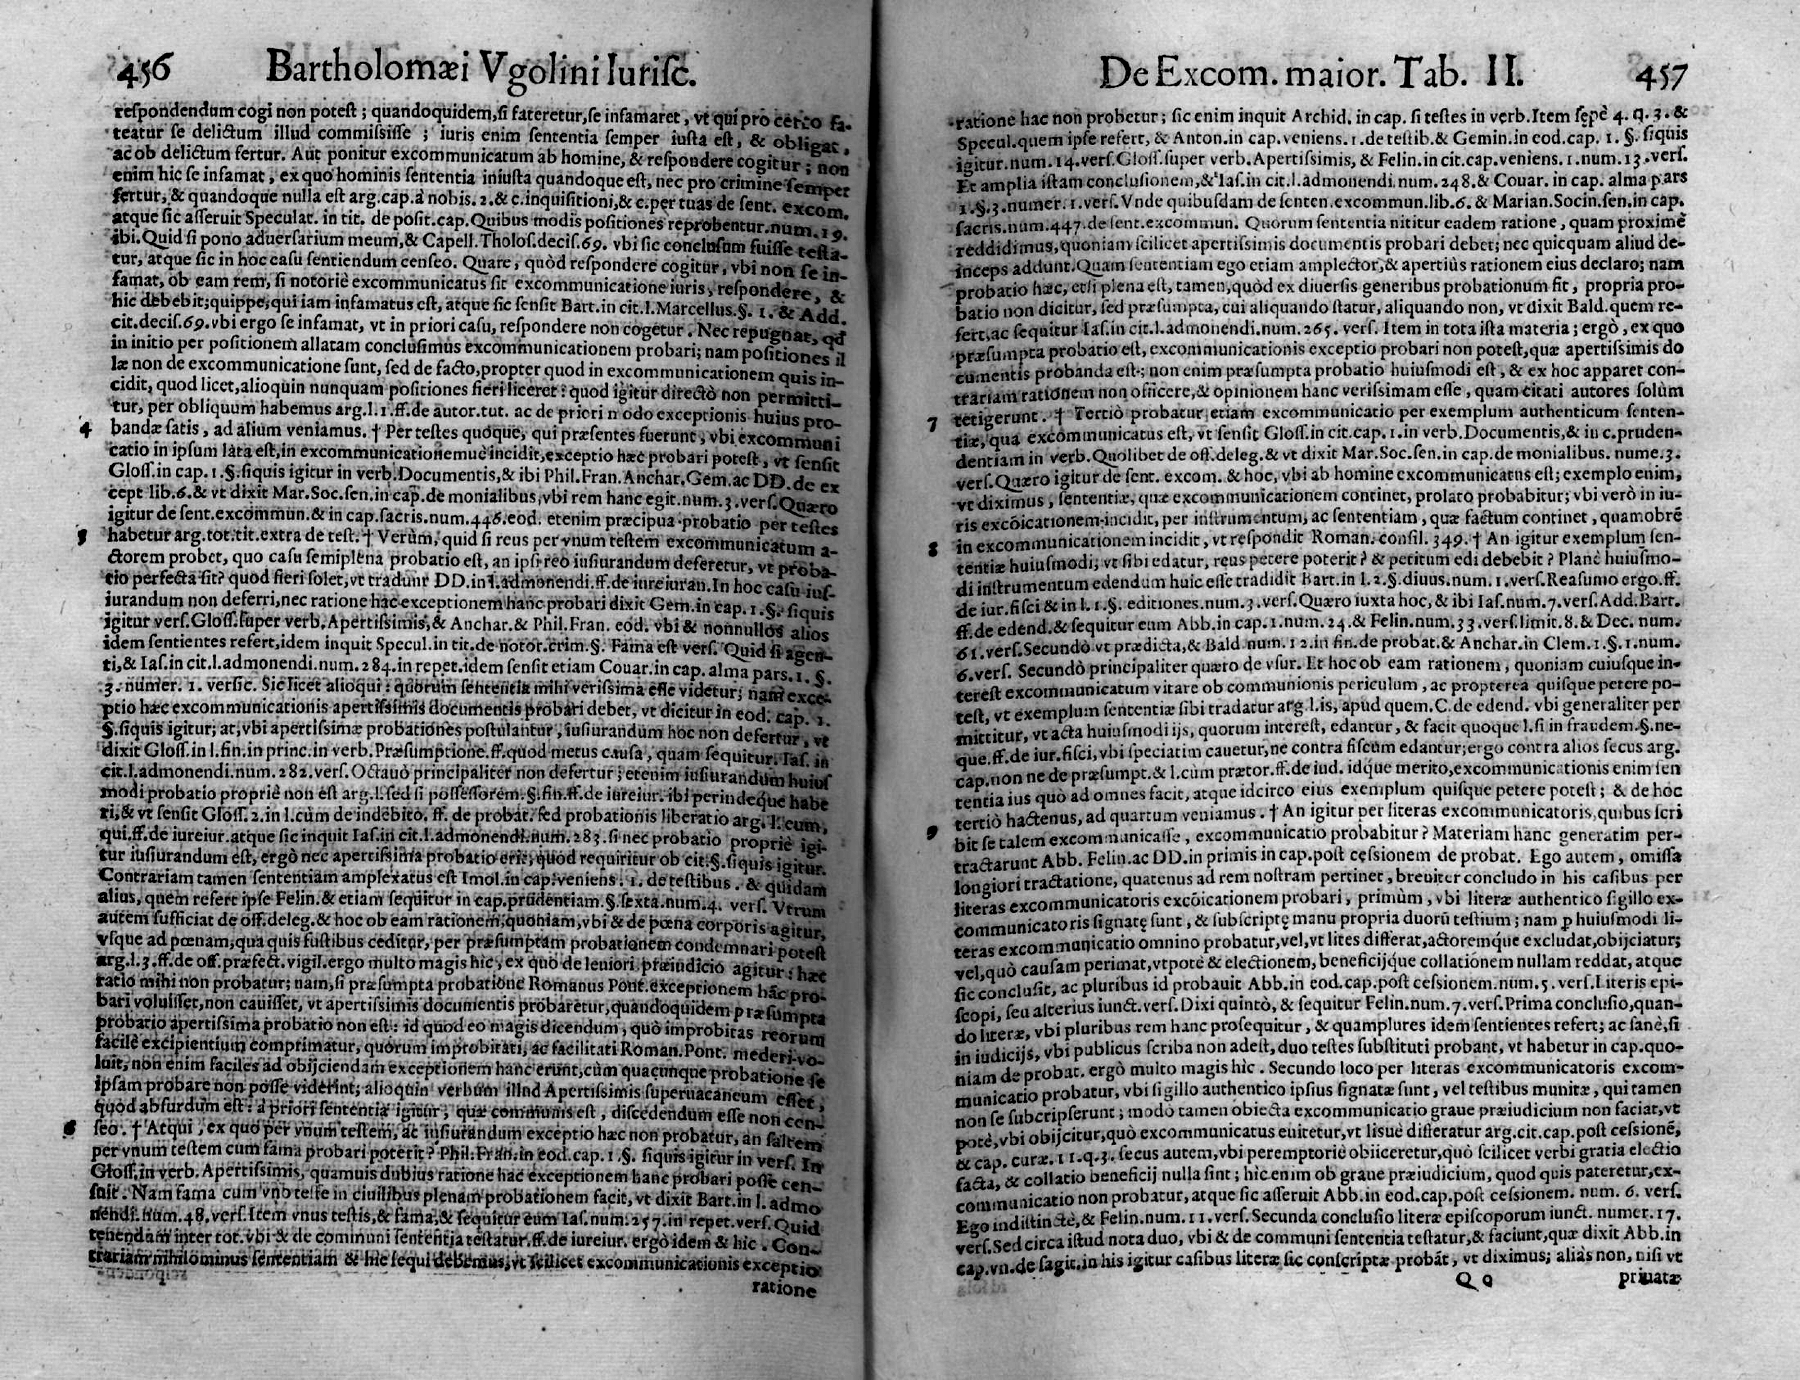 456 Bartholomæi Vgolini Iurisc.
respondendum cogi non potest; quandoquidem, si fateretur, se infamaret, vt qui pro certo fa-
teatur se delictum illud commisisse; iuris enim sententia semper iusta est, & obligat,
ac ob delictum fertur. Aut ponitur excommunicatum ab homine, & respondere cogitur; non
enim hic se infamat, ex quo hominis sententia iniusta quandoque est, nec pro crimine semper
fertur, & quandoque nulla est arg. cap. à nobis. 2. & c. inquisitioni, & c. per tuas de sent. excom.
atque sic asseruit Speculat. in tit. de posit. cap. Quibus modis positiones reprobentur. num. 19.
ibi. Quid si pono aduersarium meum, & Capell. Tholos. decis. 69. vbi sic conclusum fuisse testa-
tur, atque sic in hoc casu sentiendum censeo. Quare, quòd respondere cogitur, vbi non se in-
famat, ob eam rem, si notoriè excommunicatus sit excommunicatione iuris, respondere, &
hic debebit; quippe, qui iam infamatus est, atque sic sensit Bart. in cit. l. Marcellus. §. 1. & Add.
cit. decis. 69. vbi ergo se infamat, vt in priori casu, respondere non cogetur. Nec repugnat, qd
in initio per positionem allatam conclusimus excommunicationem probari; nam positiones il
læ non de excommunicatione sunt, sed de facto, propter quod in excommunicationem quis in-
cidit, quod licet, alioquin nunquam positiones fieri liceret: quod igitur directò non permitti-
tur, per obliquum habemus arg. l. 1. ff. de autor. tut. ac de priori modo exceptionis huius pro-
4 bandæ satis, ad alium veniamus. † Per testes quoque, qui præsentes fuerunt, vbi excommuni
catio in ipsum lata est, in excommunicationemue incidit, exceptio hæc probari potest, vt sensit
Gloss. in cap. 1. §. siquis igitur in verb. Documentis, & ibi Phil. Fran. Anchar. Gem. ac DD. de ex
cept lib. 6. & vt dixit Mar. Soc. sen. in cap. de monialibus, vbi rem hanc egit. num. 3. vers. Quæro
igitur de sent. excommun. & in cap. sacris. num. 446. eod. etenim præcipua probatio per testes
5 habetur arg. tot. tit. extra de test. † Verùm, quid si reus per vnum testem excommunicatum a-
ctorem probet, quo casu semiplena probatio est, an ipsi reo iusiurandum deferetur, vt proba-
tio perfecta sit? quod fieri solet, vt tradunt DD. in l. admonendi. ff. de iureiuran. In hoc casu ius-
iurandum non deferri, nec ratione hac exceptionem hanc probari dixit Gem. in cap. 1. §. siquis
igitur vers. Gloss. super verb. Apertissimis, & Anchar. & Phil. Fran. eod. vbi & nonnullos alios
idem sentientes refert, idem inquit Specul. in tit. de notor. crim. §. Fama est vers. Quid si agen-
ti, & Ias. in cit. l. admonendi. num. 284. in repet. idem sensit etiam Couar. in cap. alma pars. 1. §.
3. numer. 1. versic. Sic licet alioqui: quorum sententia mihi verissima esse videtur; nam exce-
ptio hæc excommunicationis apertissimis documentis probari debet, vt dicitur in eod. cap. 1.
§. siquis igitur; at, vbi apertissimæ probationes postulantur, iusiurandum hoc non defertur, vt
dixit Gloss. in l. fin. in princ. in verb. Præsumptione. ff. quod metus causa, quam sequitur. Ias. in
cit. l. admonendi. num. 282. vers. Octauò principaliter non defertur; etenim iusiurandum huius
modi probatio propriè non est arg. l. sed si possessorem. §. fin. ff. de iureiur. ibi perindeque habe
ri, & vt sensit Gloss. 2. in l. cùm de indebito. ff. de probat. sed probationis liberatio arg. l. cum,
qui. ff. de iureiur. atque sic inquit Ias. in cit. l. admonendi. num. 283. si nec probatio propriè igi-
tur iusiurandum est, ergò nec apertissima probatio erit; quod requiritur ob cit. §. siquis igitur.
Contrariam tamen sententiam amplexatus est Imol. in cap. veniens. 1. de testibus. & quidam
alius, quem refert ipse Felin. & etiam sequitur in cap. prudentiam. §. sexta. num. 4. vers. Vtrum
autem sufficiat de off. deleg. & hoc ob eam rationem, quoniam, vbi & de pœna corporis agitur,
vsque ad pœnam, qua quis fustibus cæditur, per præsumptam probationem condemnari potest
arg. l. 3. ff. de off. præfect. vigil. ergo multo magis hic, ex quò de leniori præiudicio agitur: hæc
ratio mihi non probatur; nam, si præsumpta probatione Romanus Pont. exceptionem hãc pro-
bari voluisset, non cauisset, vt apertissimis documentis probaretur, quandoquidem præsumpta
probatio apertissima probatio non est: id quod eo magis dicendum, quò improbitas reorum
facilè excipientium comprimatur, quorum improbitati, ac facilitati Roman. Pont. mederi vo-
luit, non enim faciles ad obijciendam exceptionem hanc erunt, cùm quacunque probatione se
ipsam probare non posse viderint; alioquin verbum illnd Apertissimis superuacaneum esset,
quod absurdum est: à priori sententia igitur, quæ communis est, discedendum esse non cen-
6 seo. † Atqui, ex quo per vnum testem, ac iusiurandum exceptio hæc non probatur, an saltem
per vnum testem cum fama probari poterit? Phil. Fran. in eod. cap. 1. §. siquis igitur in vers. In
Gloss. in verb. Apertissimis, quamuis dubius ratione hac exceptionem hanc probari posse cen-
suit. Nam fama cum vno teste in ciuilibus plenam probationem facit, vt dixit Bart. in l. admo
nendi. num. 48. vers. Item vnus testis, & fama, & sequitur eum Ias. num. 257. in repet. vers. Quid
tenendam inter tot. vbi & de communi sententia testatur. ff. de iureiur. ergò idem & hic. Con-
trariam nihilominus sententiam & hic sequi debemus, vt scilicet excommunicationis exceptio
ratione
De Excom. maior. Tab. II. 457
ratione hac non probetur; sic enim inquit Archid. in cap. si testes in verb. Item sępè 4. q. 3. &
Specul. quem ipse refert, & Anton. in cap. veniens. 1. de testib. & Gemin. in eod. cap. 1. §. siquis
igitur. num. 14. vers. Gloss. super verb. Apertissimis, & Felin. in cit. cap. veniens. 1. num. 13. vers.
Et amplia istam conclusionem, & Ias. in cit. l. admonendi. num. 248. & Couar. in cap. alma pars
1. §. 3. numer. 1. vers. Vnde quibusdam de senten. excommun. lib. 6. & Marian. Socin. sen. in cap.
sacris. num. 447. de sent. excommun. Quorum sententia nititur eadem ratione, quam proximè
reddidimus, quoniam scilicet apertissimis documentis probari debet; nec quicquam aliud de-
inceps addunt. Quam sententiam ego etiam amplector, & apertiùs rationem eius declaro; nam
probatio hæc, etsi plena est, tamen, quòd ex diuersis generibus probationum fit, propria pro-
batio non dicitur, sed præsumpta, cui aliquando statur, aliquando non, vt dixit Bald. quem re-
fert, ac sequitur Ias. in cit. l. admonendi. num. 265. vers. Item in tota ista materia; ergò, ex quo
præsumpta probatio est, excommunicationis exceptio probari non potest, quæ apertissimis do
cumentis probanda est; non enim præsumpta probatio huiusmodi est, & ex hoc apparet con-
trariam rationem non officere, & opinionem hanc verissimam esse, quam citati autores solùm
7 tetigerunt. † Tertiò probatur etiam excommunicatio per exemplum authenticum senten-
tiæ, qua excommunicatus est, vt sensit Gloss. in cit. cap. 1. in verb. Documentis, & in c. pruden-
dentiam in verb. Quolibet de off. deleg. & vt dixit Mar. Soc. sen. in cap. de monialibus. nume. 3.
vers. Quæro igitur de sent. excom. & hoc, vbi ab homine excommunicatus est; exemplo enim,
vt diximus, sententiæ, quæ excommunicationem continet, prolato probabitur; vbi verò in iu-
ris excõicationem incidit, per instrumentum, ac sententiam, quæ factum continet, quamobrē
8 in excommunicationem incidit, vt respondit Roman. consil. 349. † An igitur exemplum sen-
tentiæ huiusmodi, vt sibi edatur, reus petere poterit? & petitum edi debebit? Planè huiusmo-
di instrumentum edendum huic esse tradidit Bart. in l. 2. §. diuus. num. 1. vers. Reasumo ergo. ff.
de iur. fisci & in l. 1. §. editiones. num. 3. vers. Quæro iuxta hoc, & ibi Ias. num. 7. vers. Add. Bart.
ff. de edend. & sequitur eum Abb. in cap. 1. num. 24. & Felin. num. 33. vers. limit. 8. & Dec. num.
61. vers. Secundò vt prædicta, & Bald num. 12. in fin. de probat. & Anchar. in Clem. 1. §. 1. num.
6. vers. Secundò principaliter quæro de vsur. Et hoc ob eam rationem, quoniam cuiusque in-
terest excommunicatum vitare ob communionis periculum, ac propterea quisque petere po-
test, vt exemplum sententiæ sibi tradatur arg. l. is, apud quem. C. de edend. vbi generaliter per
mittitur, vt acta huiusmodi ijs, quorum interest, edantur, & facit quoque l. si in fraudem. §. ne-
que. ff. de iur. fisci, vbi speciatim cauetur, ne contra fiscum edantur; ergo contra alios secus arg.
cap. non ne de præsumpt. & l. cùm prætor. ff. de iud. idque merito, excommunicationis enim sen
tentia ius quò ad omnes facit, atque idcirco eius exemplum quisque petere potest; & de hoc
tertiò hactenus, ad quartum veniamus. † An igitur per literas excommunicatoris, quibus scri
9 bit se talem excommunicasse, excommunicatio probabitur? Materiam hanc generatim per-
tractarunt Abb. Felin. ac DD. in primis in cap. post cęssionem de probat. Ego autem, omissa
longiori tractatione, quatenus ad rem nostram pertinet, breuiter concludo in his casibus per
literas excommunicatoris excõicationem probari, primùm, vbi literæ authentico sigillo ex-
communicatoris signatę sunt, & subscriptę manu propria duorũ testium; nam p huiusmodi li-
teras excommunicatio omnino probatur, vel, vt lites differat, actoremque excludat, obijciatur;
vel, quò causam perimat, vtpotè & electionem, beneficijque collationem nullam reddat, atque
sic conclusit, ac pluribus id probauit Abb. in eod. cap. post cessionem. num. 5. vers. Literis epi-
scopi, seu alterius iunct. vers. Dixi quintò, & sequitur Felin. num. 7. vers. Prima conclusio, quan-
do literæ, vbi pluribus rem hanc prosequitur, & quamplures idem sentientes refert; ac sanè, si
in iudicijs, vbi publicus scriba non adest, duo testes substituti probant, vt habetur in cap. quo-
niam de probat. ergò multo magis hic. Secundo loco per literas excommunicatoris excom-
municatio probatur, vbi sigillo authentico ipsius signatæ sunt, vel testibus munitæ, qui tamen
non se subcripserunt; modò tamen obiecta excommunicatio graue præiudicium non faciat, vt
potè, vbi obijcitur, quò excommunicatus euitetur, vt lisuè differatur arg. cit. cap. post cessionē,
& cap. curæ. 11. q. 3. secus autem, vbi peremptoriè obiiceretur, quò scilicet verbi gratia electio
facta, & collatio beneficij nulla sint; hic enim ob graue præiudicium, quod quis pateretur, ex-
communicatio non probatur, atque sic asseruit Abb. in eod. cap. post cessionem. num. 6. vers.
Ego indistinctè, & Felin. num. 11. vers. Secunda conclusio literæ episcoporum iunct. numer. 17.
vers. Sed circa istud nota duo, vbi & de communi sententia testatur, & faciunt, quæ dixit Abb. in
cap. vn. de sagit. in his igitur casibus literæ sic conscriptæ probãt, vt diximus; aliàs non, nisi vt
Q q priuatæ